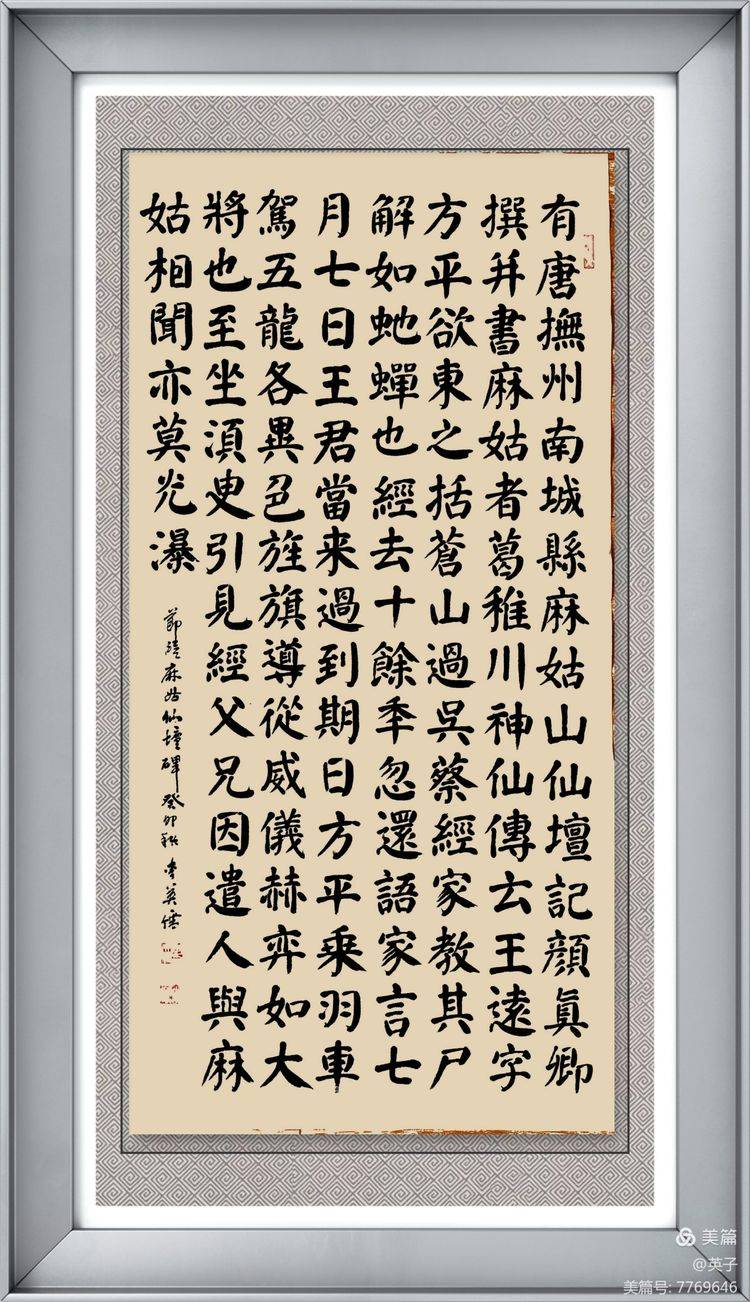 有唐撫州南城縣麻姑山仙壇記顏真卿
撰并書麻姑者葛稚川神仙傳云王遠字
方平欲東之括蒼山過吳蔡經家教其尸
解如虵蟬也經去十餘年忽還語家言七
月七日王君當来過到期日方平乘羽車
駕五龍各異色旌旗導從威儀赫弈如大
將也至坐須臾引見經父兄因遣人與麻
姑相聞亦莫光瀑
節臨麻姑仙壇碑 癸卯秋 李英儒
美篇
@英子
美篇号: 7769646